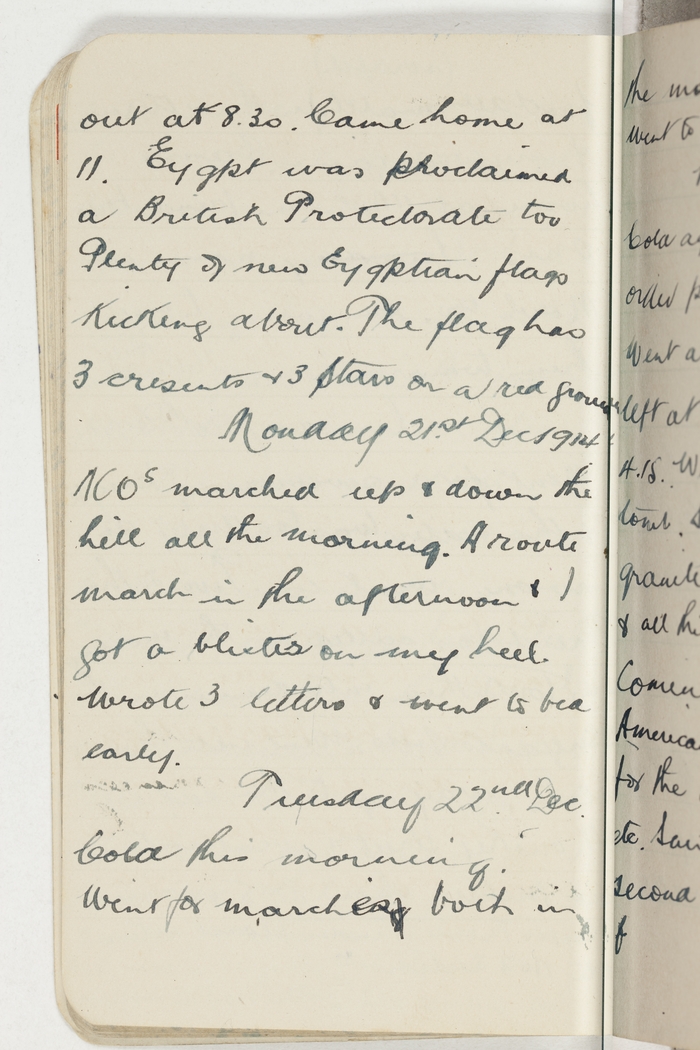 out at 8.30. Came home at
11. Eygpt was proclaimed
a British Protectorate too
Plenty of new Eygptian flags
kicking about. The flag has
3 cresents & 3 stars on a red ground
Monday 21st Dec 1914
NCOs marched up & down the
hill all the morning. A route
march in the afternoon & I
got a blister on my heel.
Wrote 3 letters & went to bed
early.
Tuesday 22nd Dec.
Cold this morning.
Went for march both in
the
went to
Cold
Went a
left at
4.15.
tomb.
& all
for the
etc.
second